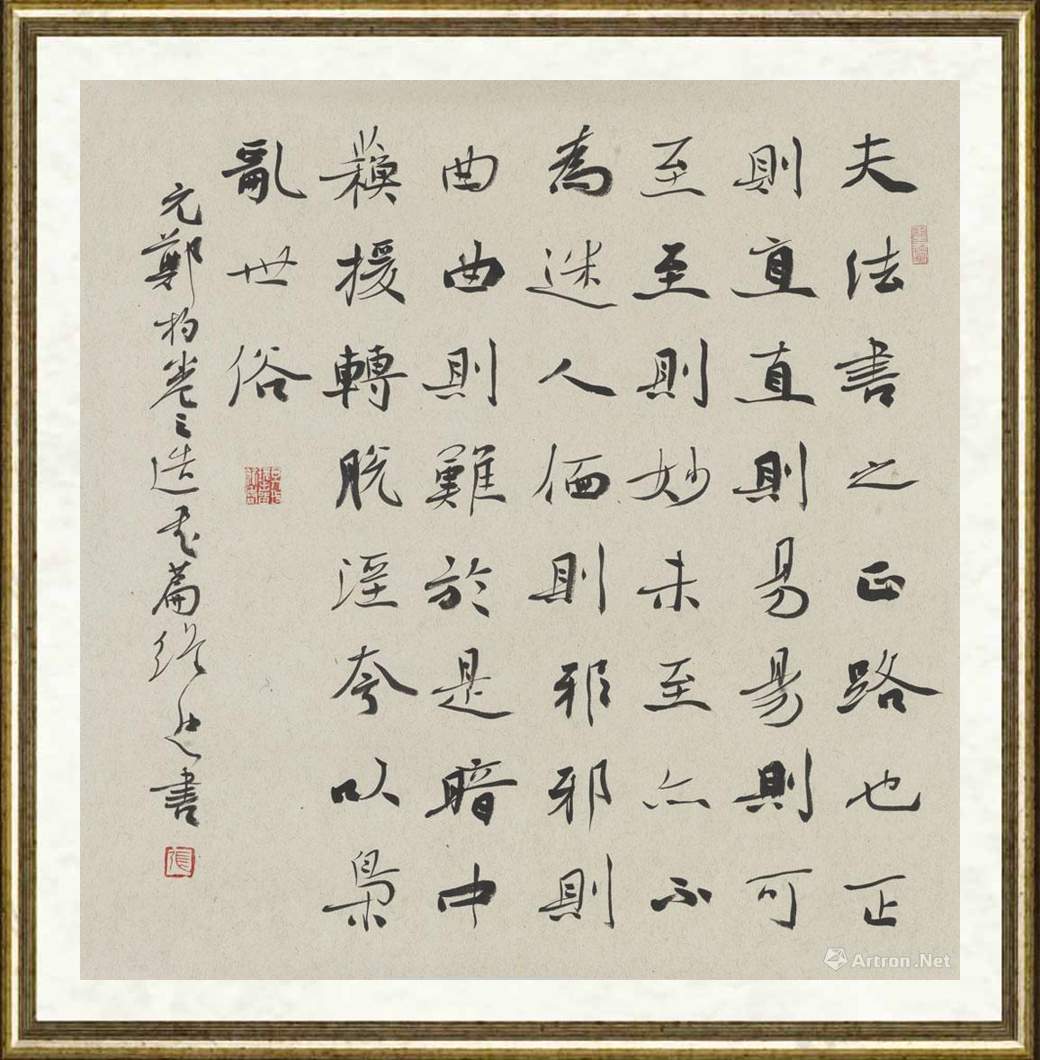 夫法書之正路也正
則直直則易易則可
至至則妙未至亦不
為迷人偭則邪邪則
曲曲則難於是暗中
援轉脱淫夸以梟
亂世俗
元鄭杓卷之造篇書
張
Artron.Net